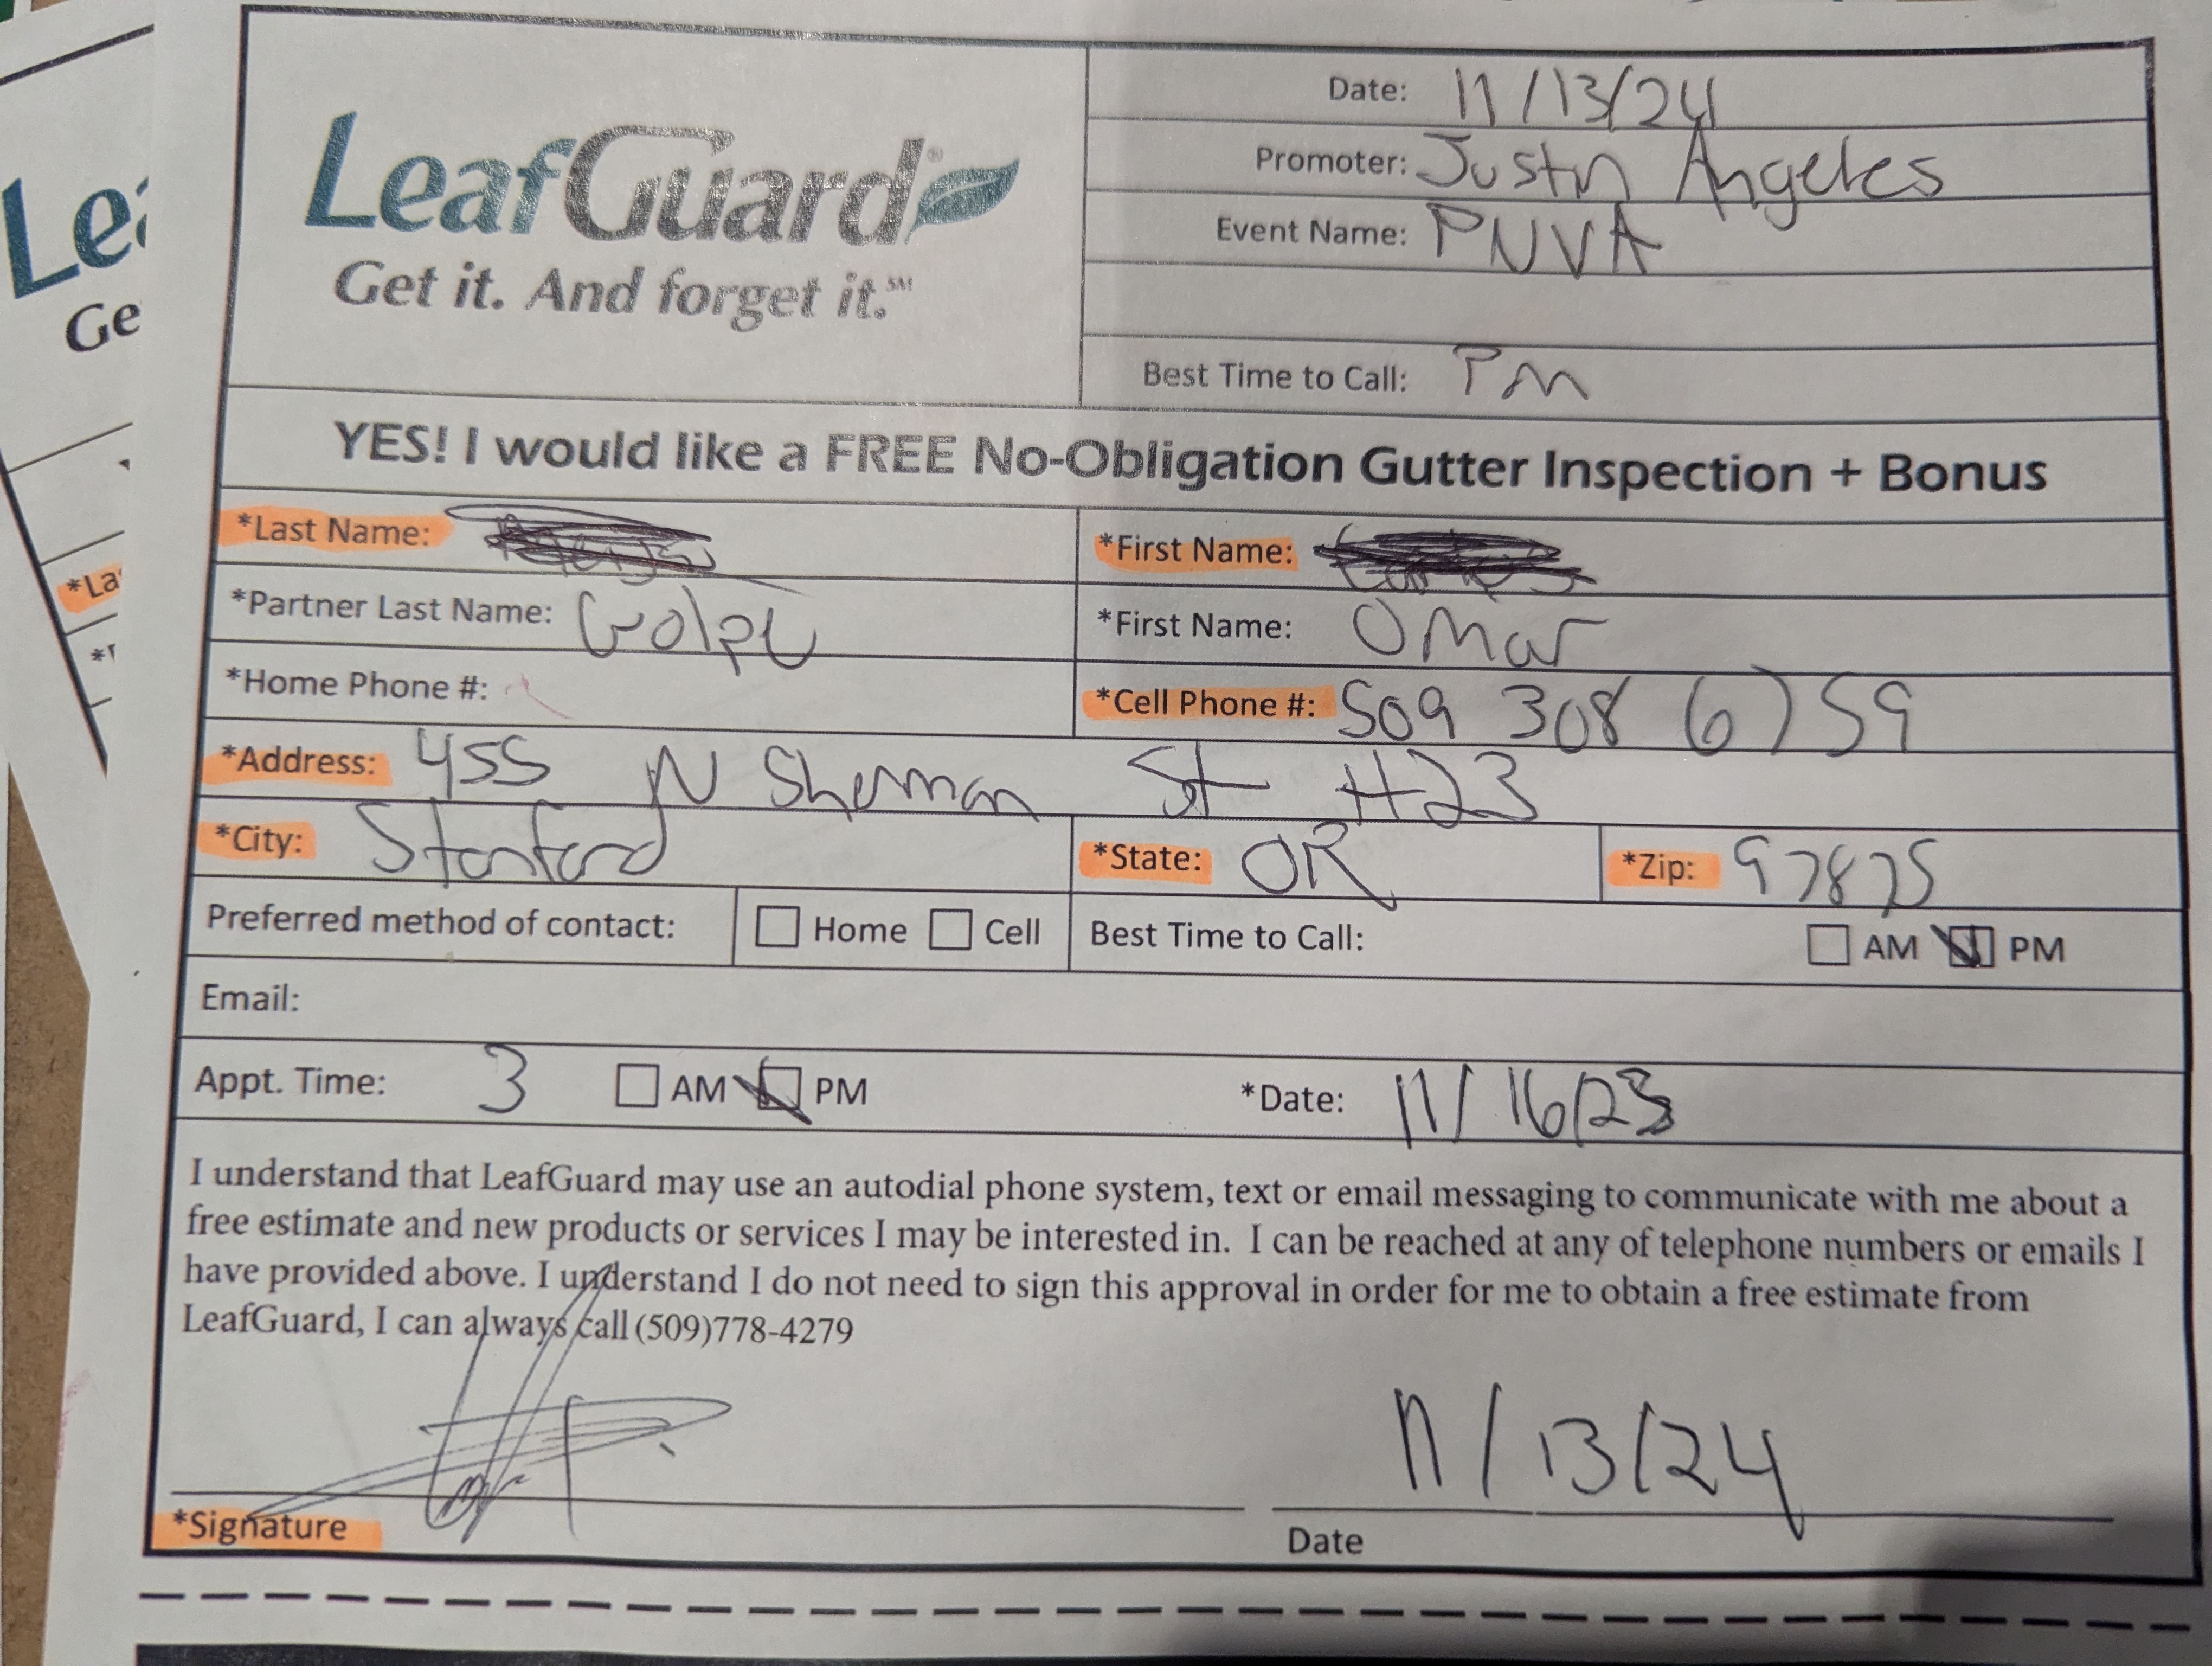 LeafGuard®
Get it. And forget it.℠
Date: 11/13/24
Promoter: Justin Angeles
Event Name: PNVA
Best Time to Call: PM
YES! I would like a FREE No-Obligation Gutter Inspection + Bonus
*Last Name:
*First Name:
*Partner Last Name: Golpe
*First Name: Omar
*Home Phone #:
*Cell Phone #: 509 308 6759
*Address: 455 N Sherman St #23
*City: Stanford
*State: OR
*Zip: 97875
Preferred method of contact: Home Cell
Best Time to Call: AM PM
Email:
Appt. Time: 3 AM PM
*Date: 11/16/23
I understand that LeafGuard may use an autodial phone system, text or email messaging to communicate with me about a
free estimate and new products or services I may be interested in. I can be reached at any of telephone numbers or emails I
have provided above. I understand I do not need to sign this approval in order for me to obtain a free estimate from
LeafGuard, I can always call (509)778-4279
11/13/24
*Signature
Date
Lea
Ge
*La